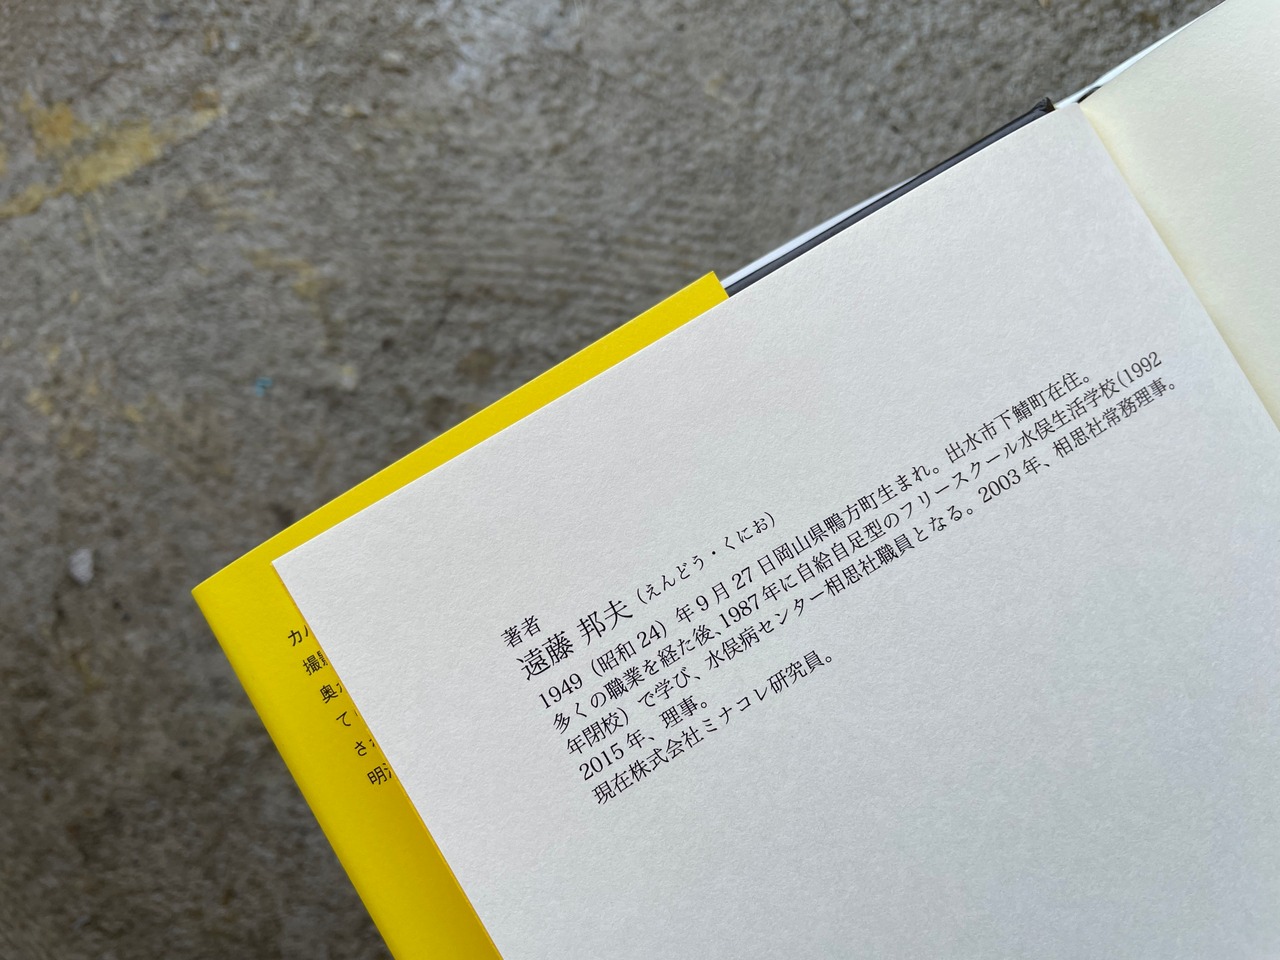 著者
遠藤 邦夫（えんどう・くにお）
1949（昭和24）年9月27日岡山県鴨方町生まれ。出水市下鯖町在住。
多くの職業を経た後、1987年に自給自足型のフリースクール水俣生活学校（1992
年閉校）で学び、水俣病センター相思社職員となる。2003年、相思社常務理事。
2015年、理事。
現在株式会社ミナコレ研究員。
カバ
撮影
奥
て
さ
明